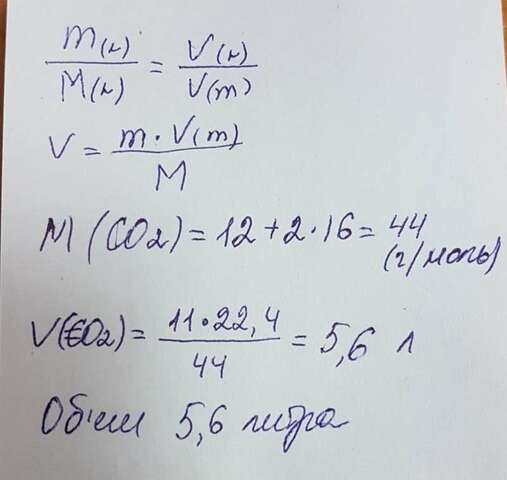 m(г)/M(г) = V(г)/V(m)
V = m · V(m)/M
M (CO2) = 12 + 2 · 16 = 44
(г/моль)
V(CO2) = 11 · 22,4/44 = 5,6 л
Об'єм 5,6 литра